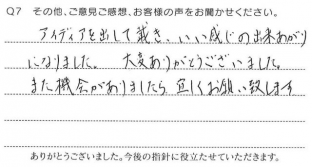 Q7 その他、ご意見ご感想、お客様の声をお聞かせください。
アイディアを出して戴き、いい感じの出来あがり
になりました。大変ありがとうございました。
また機会がありましたら宜しくお願い致します
ありがとうございました。今後の指針に役立たせていただきます。